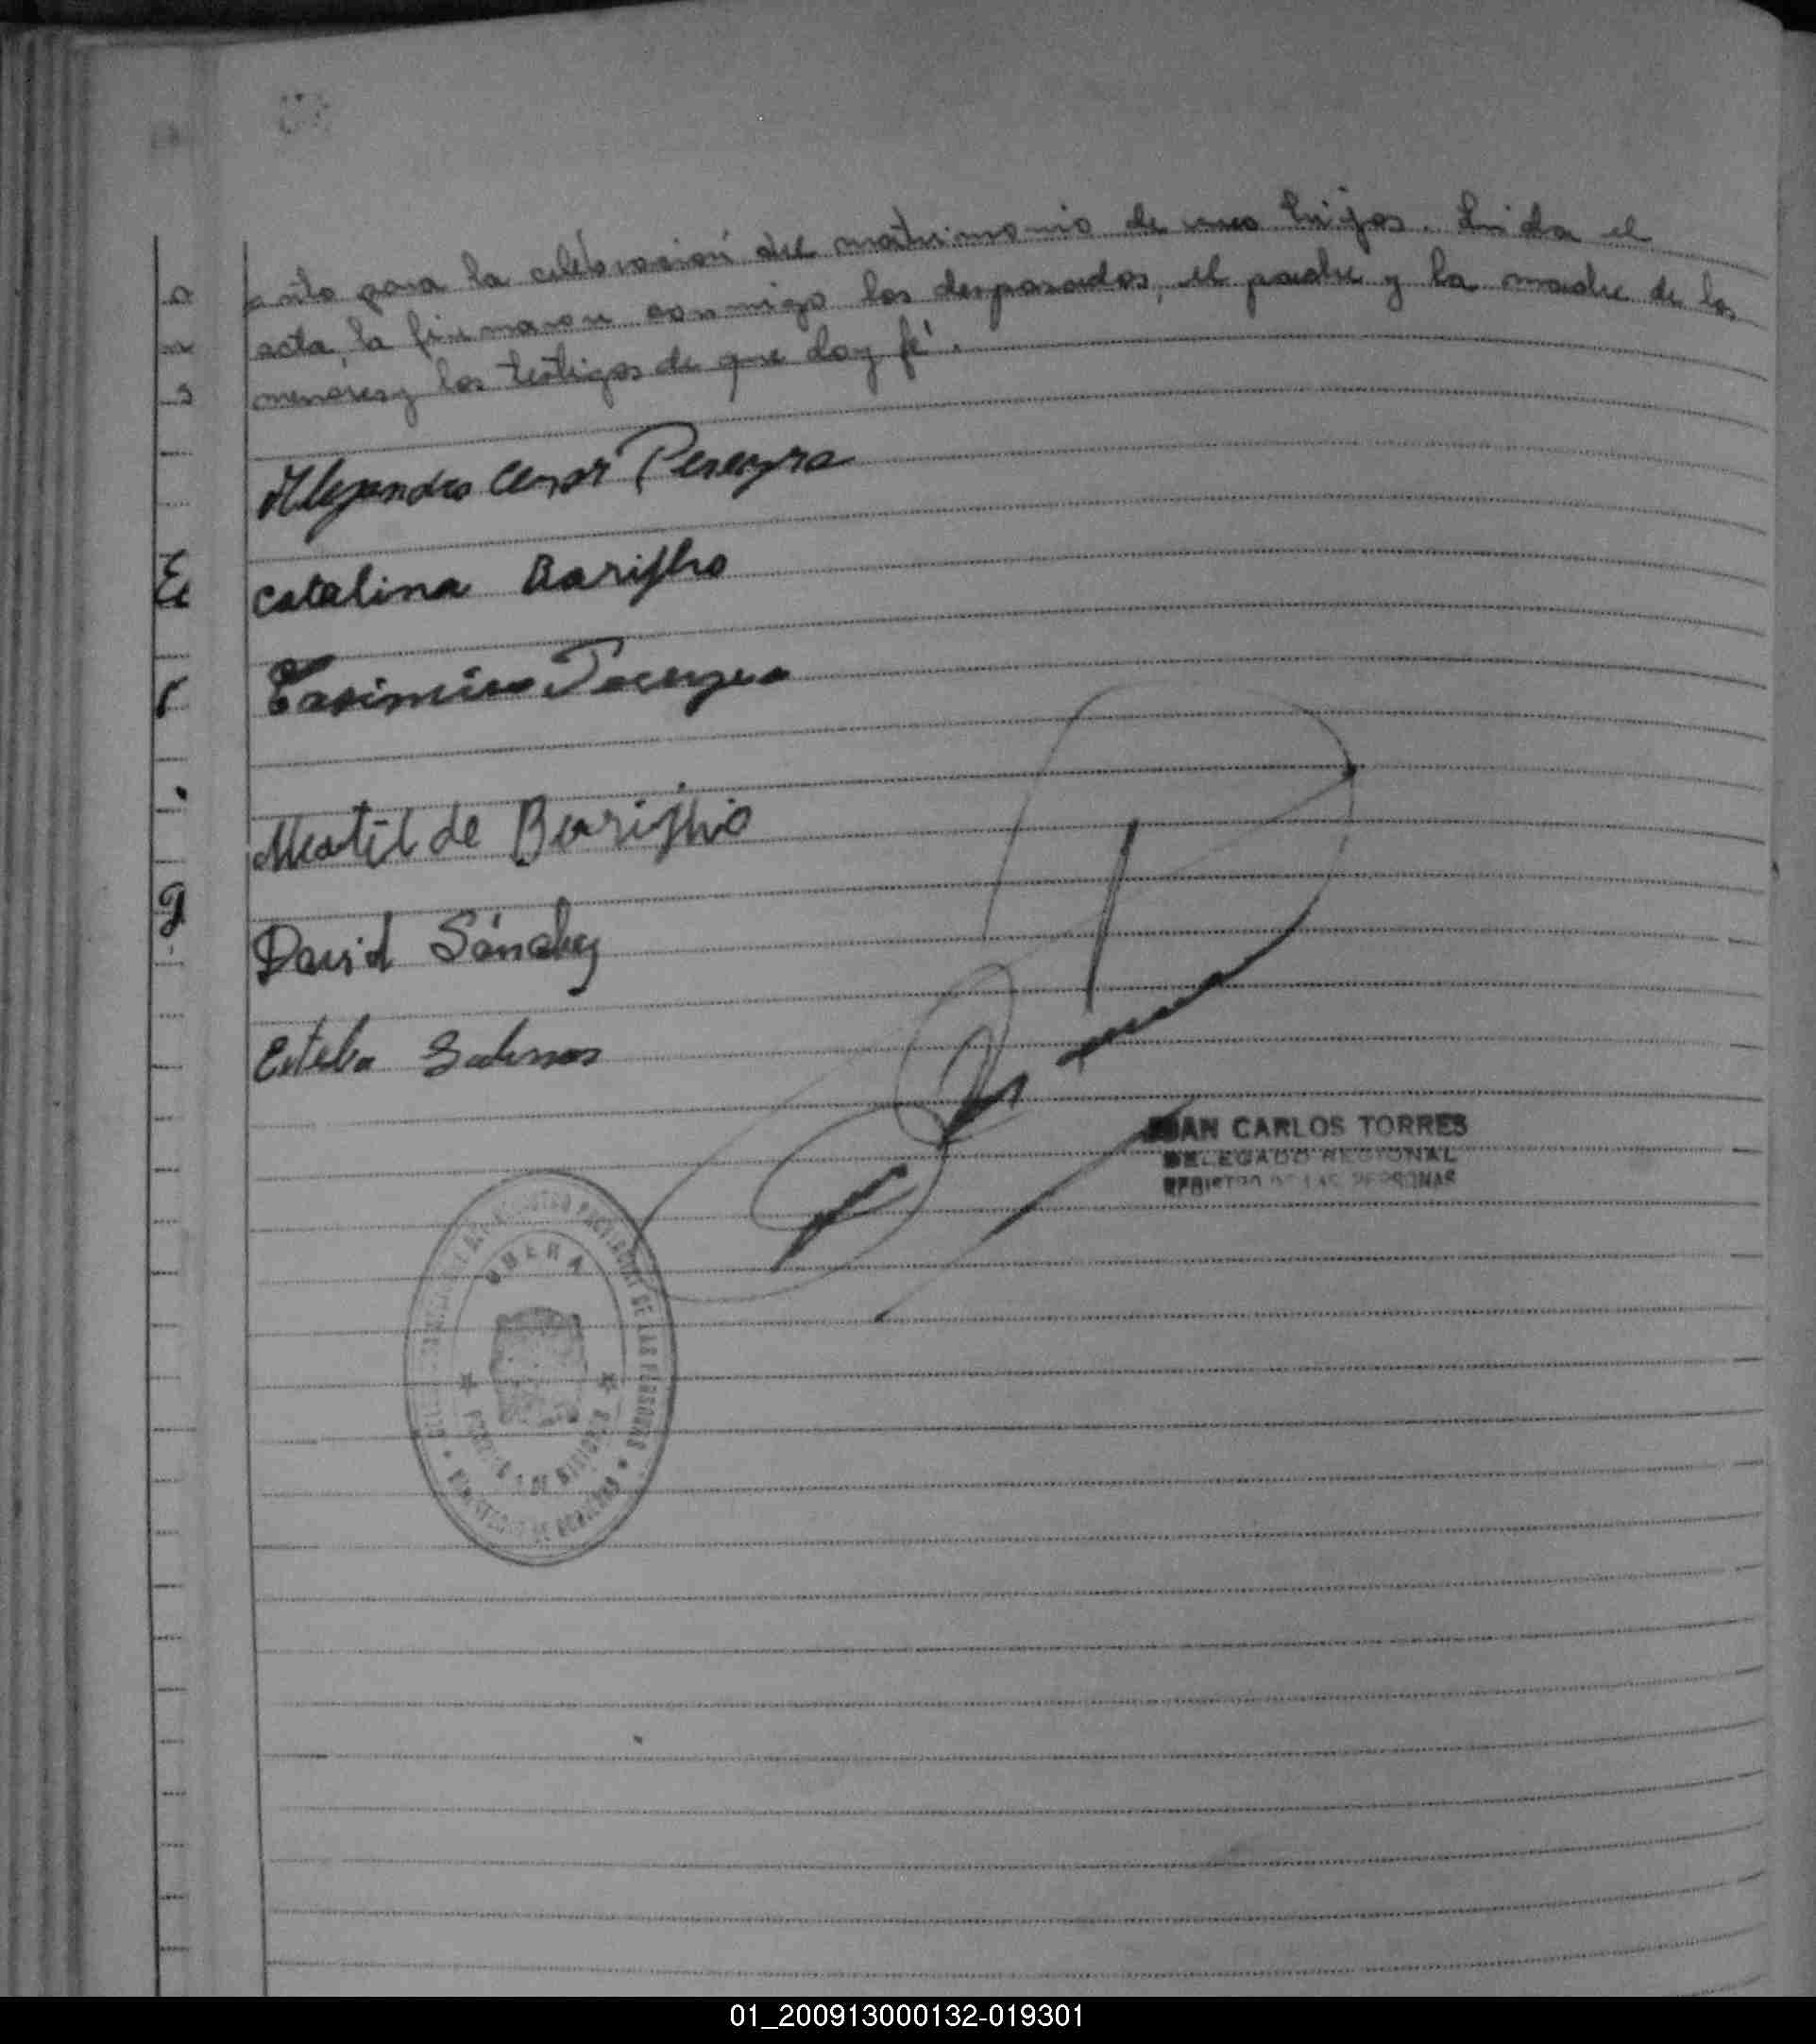 para la celebración del matrimonio de sus hijos. Leída el
acta, la firmaron conmigo los desposados, el padre y la madre de los
menores y los testigos de que doy fé.
Alejandro Cesar Pereyra
Catalina Bariffho
Casimiro Pereyra
Matilde Bariffho
David Sánchez
Estela
JUAN CARLOS TORRES
DELEGADO REGIONAL
REGISTRO DE LAS PERSONAS
OBERA
DE LAS PERSONAS
DE MISIONES
01_200913000132-019301